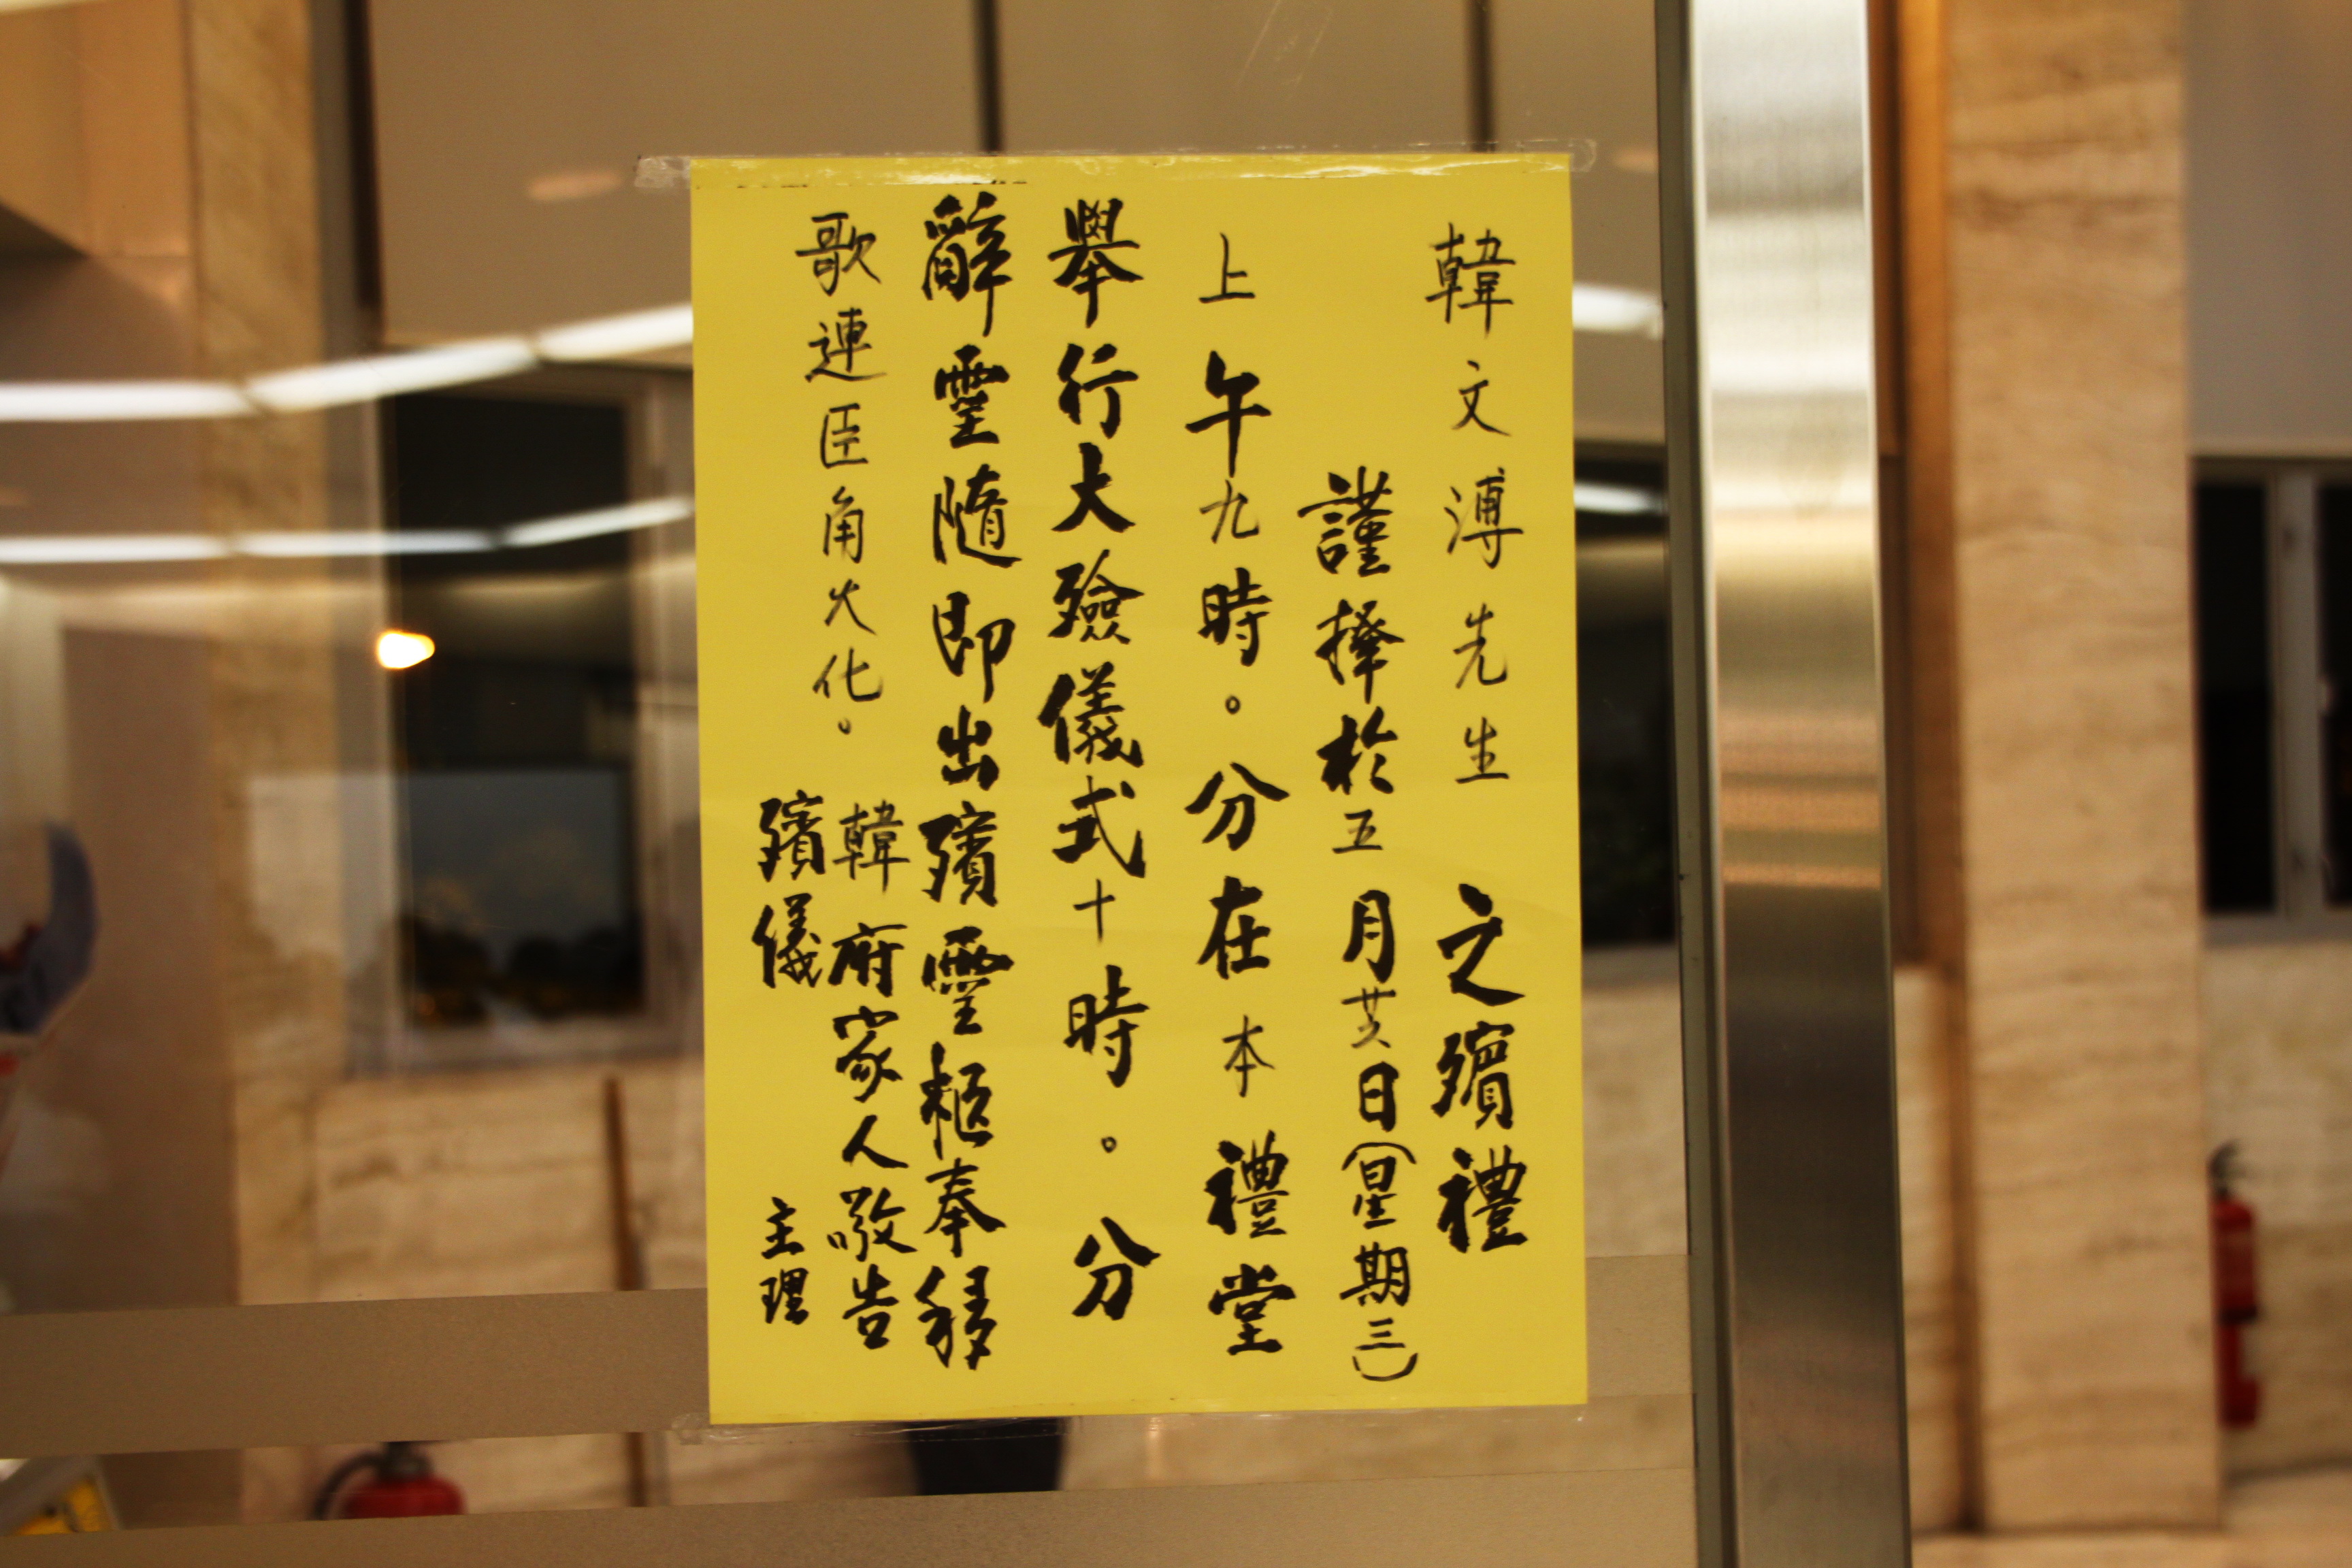 韓文溥先生之殯禮
謹擇於五月廿六日(星期三)
上午九時。分在本禮堂
舉行大殮儀式十時。分
辭靈隨即出殯靈柩奉移
歌連臣角火化。
韓府家人敬告
殯儀主理